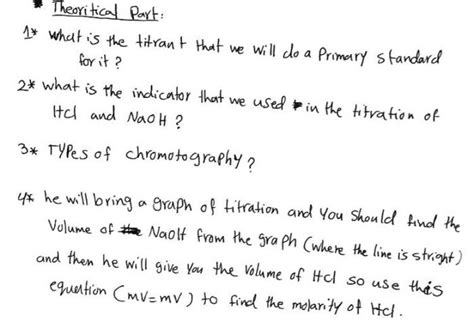 * Theoritical Part:
1* what is the titrant that we will do a Primary standard
for it ?
2* what is the indicator that we used in the titration of
Hcl and NaOH ?
3* Types of chromotography ?
4* he will bring a graph of titration and you should find the
Volume of NaoH from the graph (where the line is stright)
and then he will give you the volume of Hcl so use this
equention (mV=mV) to find the molarity of Hcl.